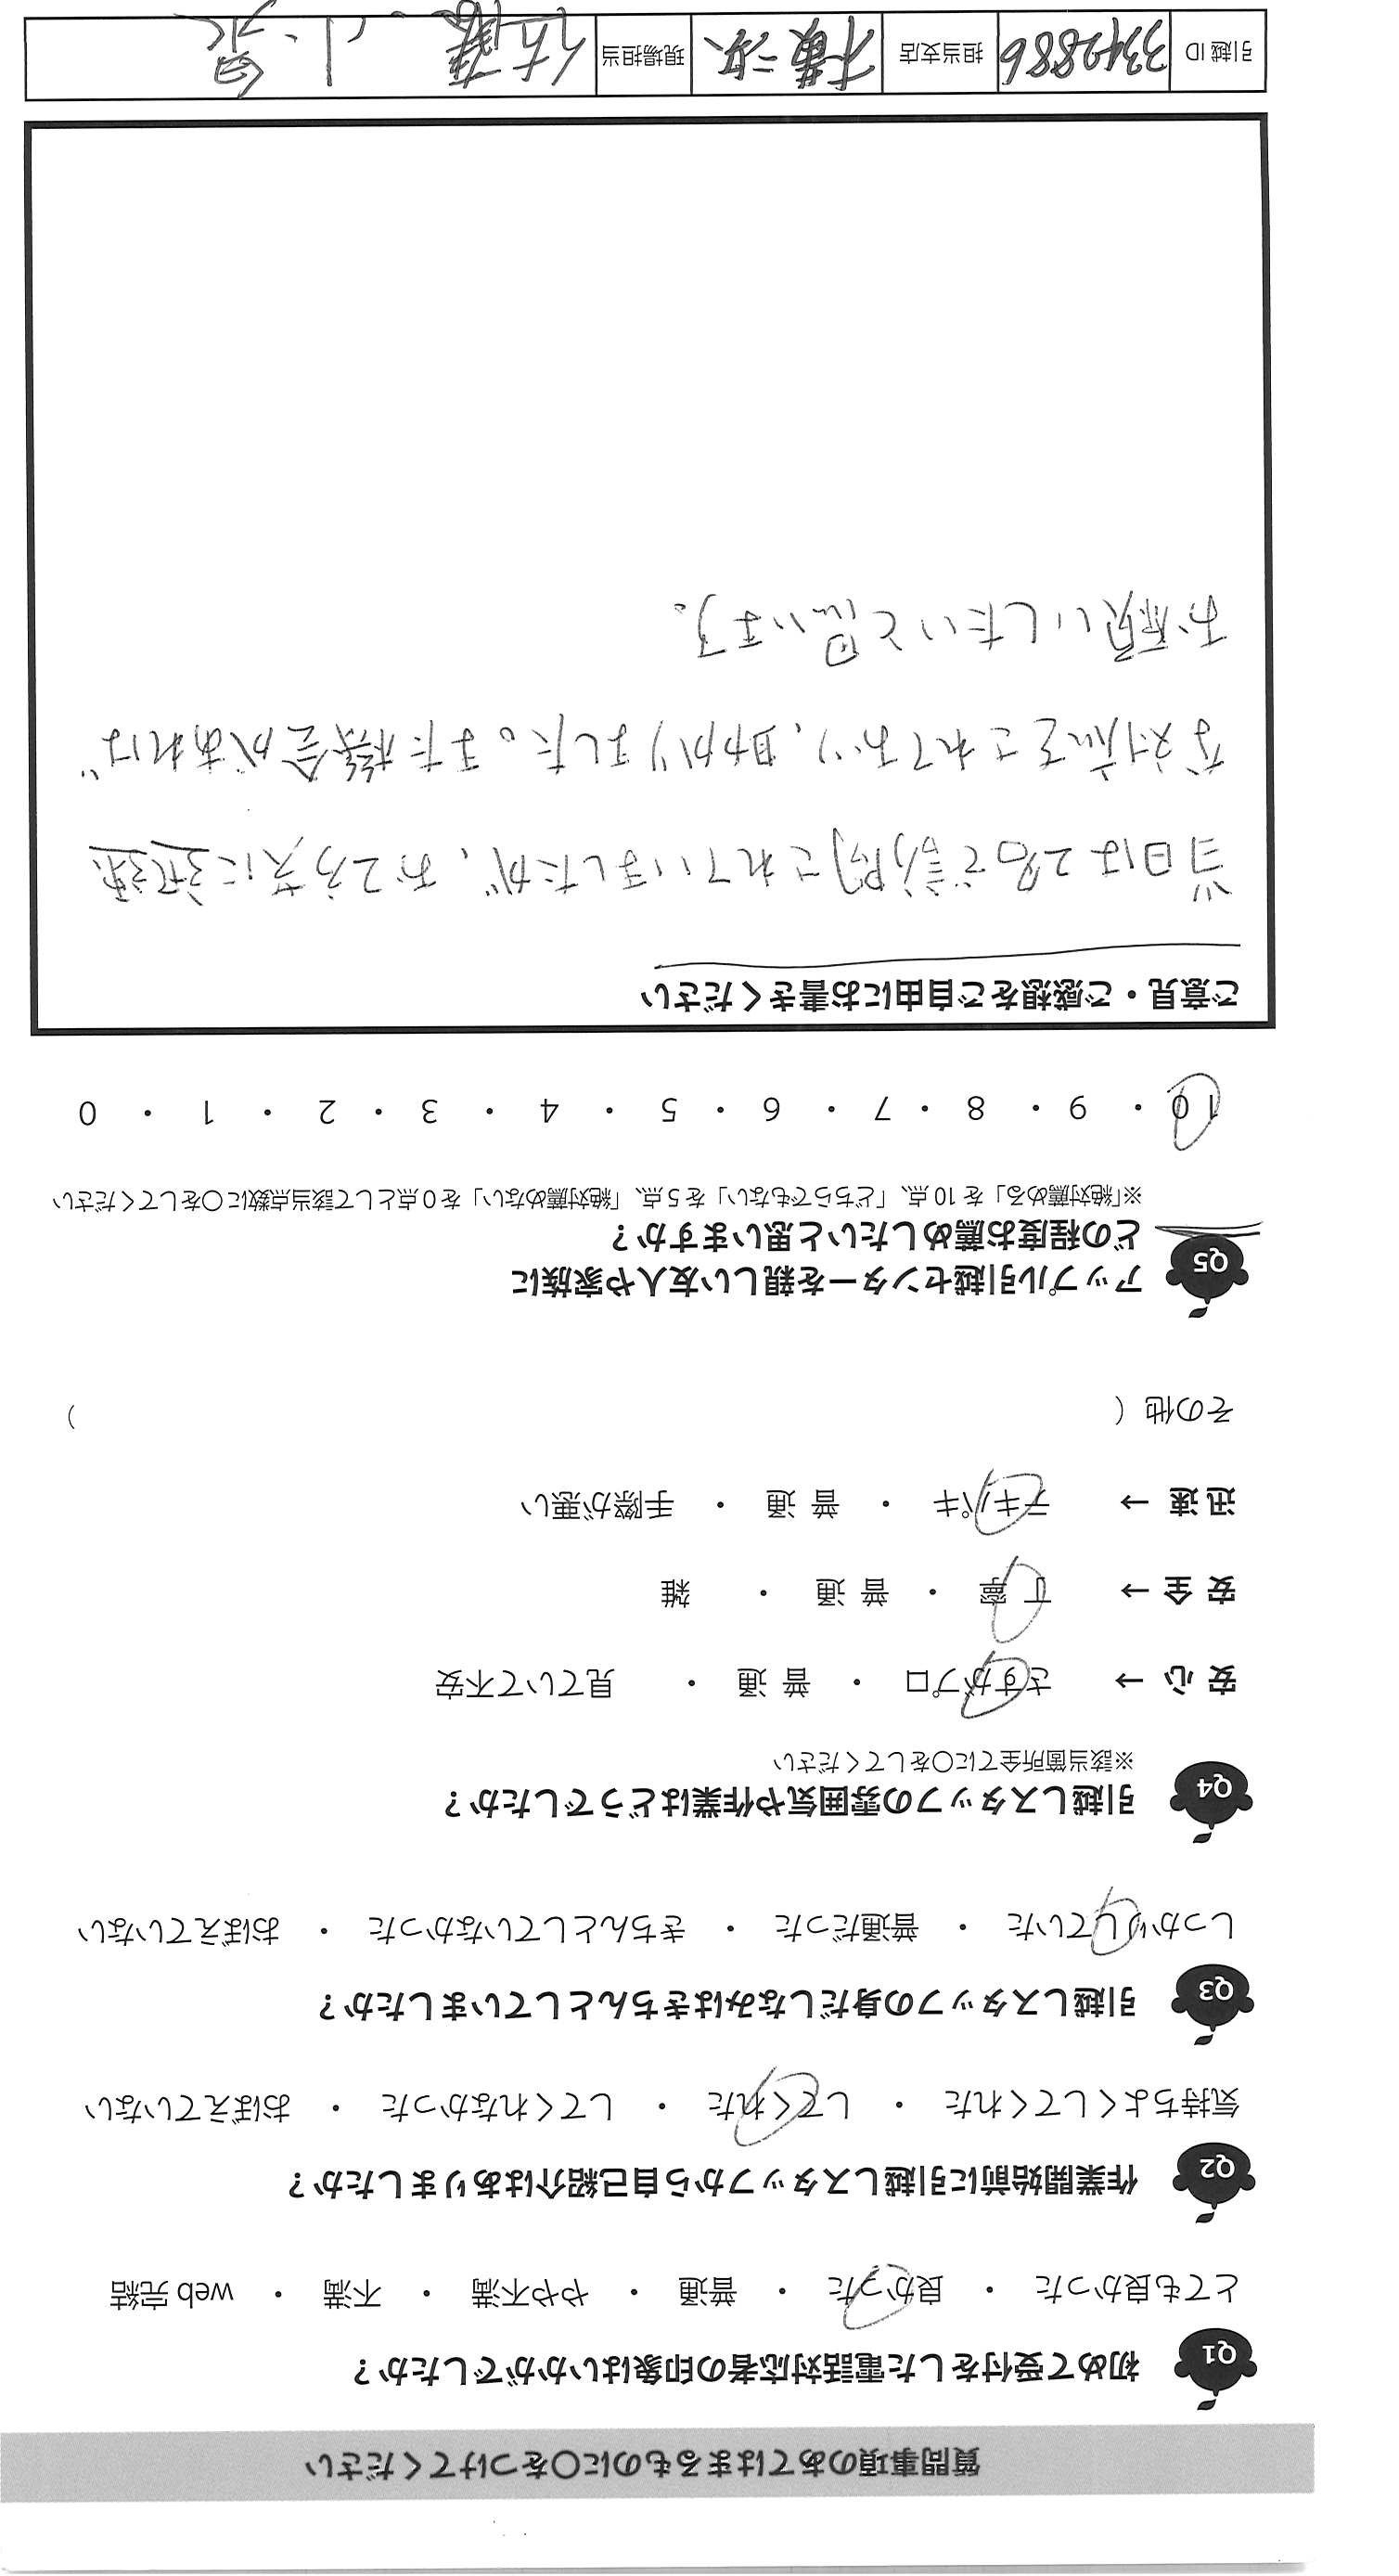 質問事項のあてはまるものに〇をつけてください
Q1 初めて受付をした電話対応者の印象はいかがでしたか？
とても良かった ・ 良かった ・ 普通 ・ やや不満 ・ 不満 ・ web 完結
Q2 作業開始前に引越しスタッフから自己紹介はありましたか？
気持ちよくしてくれた ・ してくれた ・ してくれなかった ・ おぼえていない
Q3 引越しスタッフの身だしなみはきちんとしていましたか？
しっかりしていた ・ 普通だった ・ きちんとしていなかった ・ おぼえていない
Q4 引越しスタッフの雰囲気や作業はどうでしたか？
※該当箇所全てに〇をしてください
安 心 → さすがプロ ・ 普 通 ・ 見ていて不安
安 全 → 丁 寧 ・ 普 通 ・ 雑
迅 速 → テキパキ ・ 普 通 ・ 手際が悪い
その他 （ ）
Q5 アップル引越センターを親しい友人や家族に
どの程度お薦めしたいと思いますか？
※「絶対薦める」を 10 点、「どちらでもない」を 5 点、「絶対薦めない」を 0 点として該当点数に〇をしてください
10 ・ 9 ・ 8 ・ 7 ・ 6 ・ 5 ・ 4 ・ 3 ・ 2 ・ 1 ・ 0
ご意見・ご感想をご自由にお書きください
当日は2名で訪問されていましたが、お2方共に迅速
な対応をされており、助かりました。また機会があれば
お願いしたいと思います。
引越 ID 3342886 担当支店 横浜 現場担当 佐藤、小泉